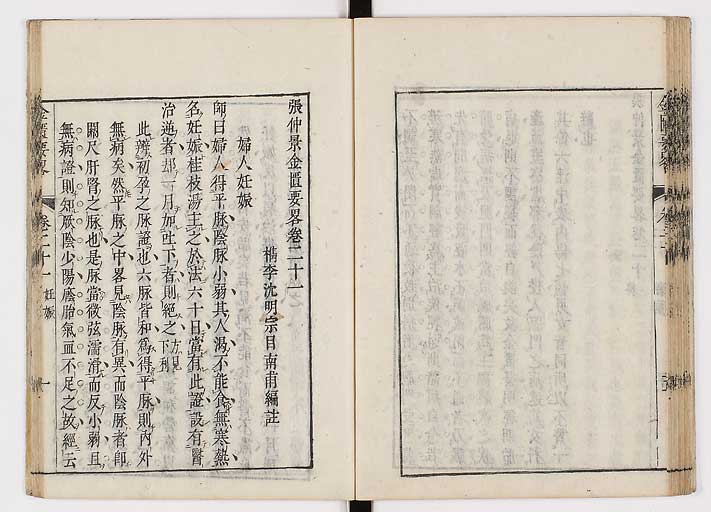 張仲景金匱要畧卷二十一
檇李沈明宗目南甫編註
婦人妊娠
師曰婦人得平脉陰脉小弱其人渴不能食無寒熱
名妊娠桂枝湯主之於法六十日當有此證設有醫
治逆者却一月加吐下者則絕之方見下利
此辨初孕之脉證也六脉皆和爲得平脉則內外
無病矣然平脉之中畧見陰脉有異而陰脉者卽
關尺肝腎之脉也是脉當微弦濡滑而反小弱且
無病證則知厥陰少陽廕胎氣血不足之故經云
金匱要畧
卷二十一
妊娠
一
金匱要畧